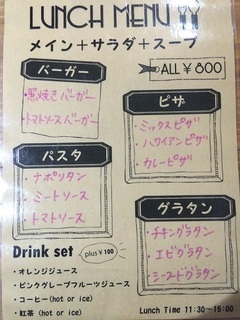 LUNCH MENU
メイン+サラダ+スープ
バーガー
・黒焼きバーガー
・トマトソースバーガー
ALL ¥800
ピザ
・ミックスピザ
・ハワイアンピザ
・カレーピザ
パスタ
・ナポリタン
・ミートソース
・トマトソース
グラタン
・チキングラタン
・エビグラタン
・シーフードグラタン
Drink set plus¥100
・オレンジジュース
・ピンクグレープフルーツジュース
・コーヒー(hot or ice)
・紅茶(hot or ice)
Lunch Time 11:30~15:00